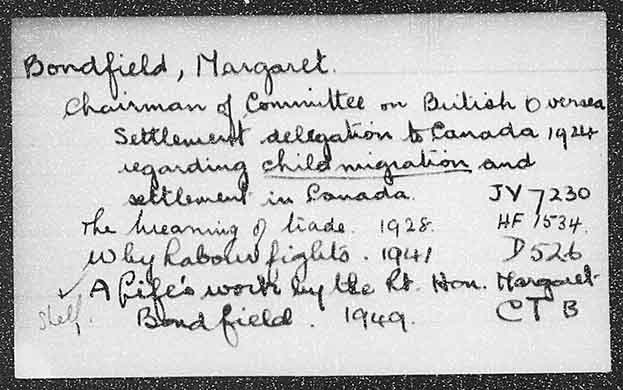 Bondfield, Margaret.
Chairman of Committee on British Oversea
Settlement delegation to Canada 1924
regarding child migration and
settlement in Canada. JV 7230
The meaning of trade. 1928. HF 1534.
Why Labour fights. 1941 D526
✓ A life's work by the Rt. Hon. Margaret
Shelf. Bondfield. 1949. CT B